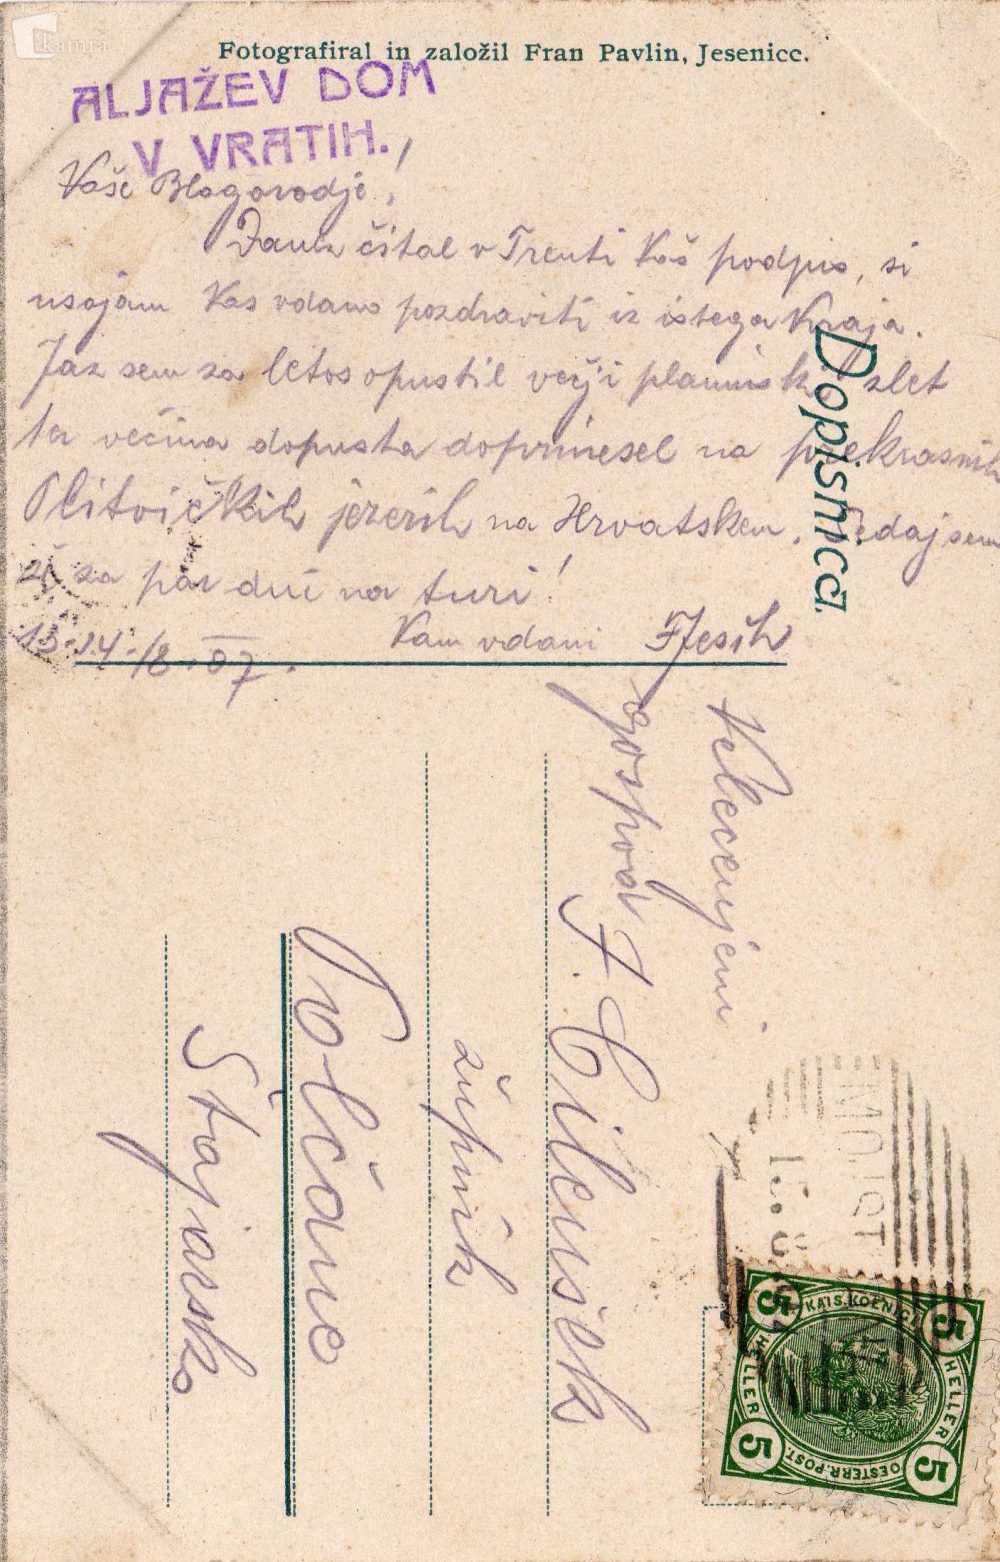 kamra
Fotografiral in založil Fran Pavlin, Jesenice.
ALJAŽEV DOM
V VRATIH.
Vaše Blagorodje!
čital v Trenti Vaš podpis, si
usojam Vas vdano pozdraviti iz istega kraja.
Jaz sem za letos opustil večji planinski zlet
ter večino dopusta doprinesel na prekrasnih
Plitvičkih jezerih na Hrvatskem. Sedaj sem
še za par dni na turi!
13.-14./8.07. Vam vdani FJesih
Dopisnica.
Velecenjeni
gospod
A. Cilenšek
župnik
Polčane
Štajersko
KAIS. KOENIGL.
OESTERR. POST.
HELLER
HELLER
5
5
5
5